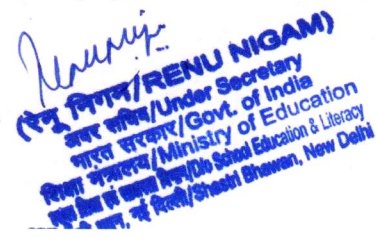 (रेनू निगम/RENU NIGAM)
अवर सचिव/Under Secretary
भारत सरकार/Govt. of India
शिक्षा मंत्रालय/Ministry of Education
School Education & Literacy
नई दिल्ली/Shastri Bhawan, New Delhi